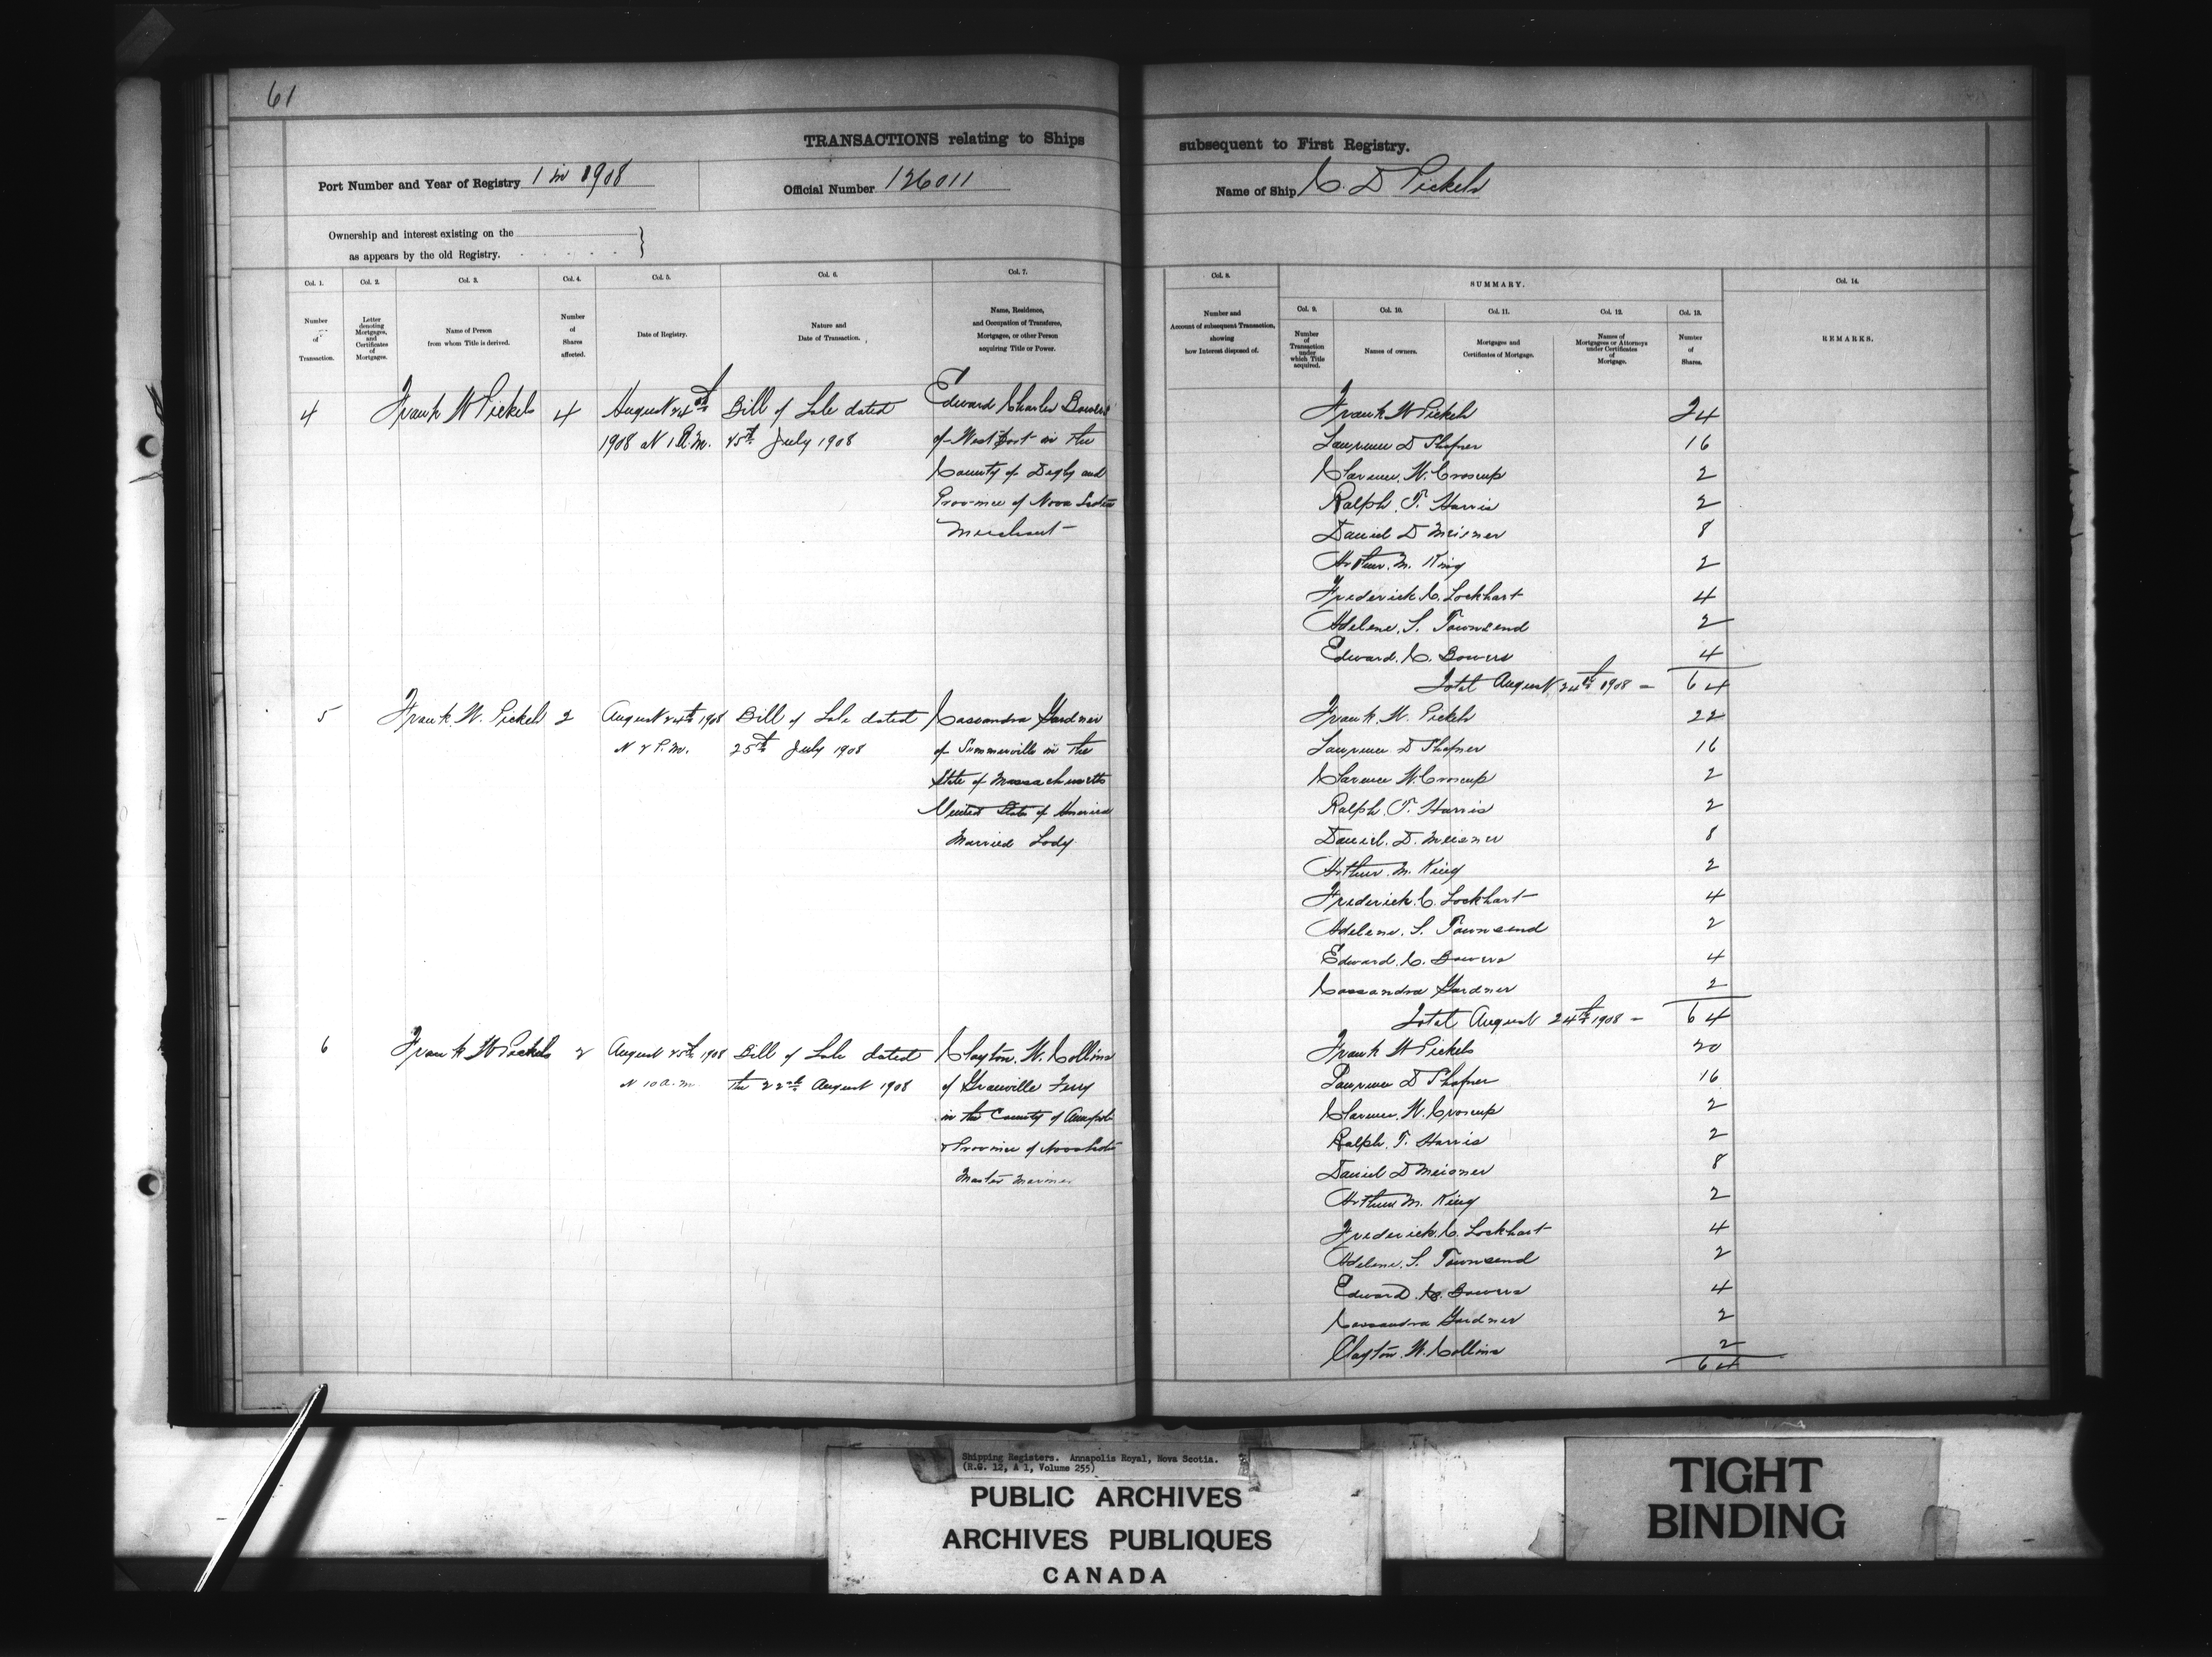 61
TRANSACTIONS relating to Ships subsequent to First Registry.
Port Number and Year of Registry 1 in 1908
Official Number 126011
Name of Ship C. D Pickels
Ownership and interest existing on the
as appears by the old Registry.
Col. 1. Col. 2. Col. 3. Col. 4. Col. 5. Col. 6. Col. 7. Col. 8. SUMMARY. Col. 14.
Col. 9. Col. 10. Col. 11. Col. 12. Col. 13.
Number of Transaction.
Letter denoting Mortgages, and Certificates of Mortgages.
Name of Person from whom Title is derived.
Number of Shares affected.
Date of Registry.
Nature and Date of Transaction.
Name, Residence, and Occupation of Transferee, Mortgagee, or other Person acquiring Title or Power.
Number and Account of subsequent Transaction, showing how Interest disposed of.
Number of Transaction under which Title acquired.
Names of owners.
Mortgages and Certificates of Mortgage.
Names of Mortgagees or Attorneys under Certificates of Mortgage.
Number of Shares.
REMARKS.
4 Frank W Pickels 4 August 24th Bill of Sale dated Edward Charles Bowers
1908 at 1 P.M. 25th July 1908 of Westport in the
County of Digby and
Province of Nova Scotia
Merchant
Frank W Pickels 24
Laurence D Shafner 16
Clarence. W. Croscup 2
Ralph. T. Harris 2
Daniel D Meisner 8
Arthur. M. King 2
Frederick C. Lockhart 4
Adelene. S. Townsend 2
Edward. C. Bowers 4
Total August 24th 1908 = 64
5 Frank. W. Pickels 2 August 24th 1908 Bill of Sale dated Cassandra Gardner
at 2 P.M. 25th July 1908 of Summerville in the
State of Massachusetts
United States of America
Married Lady
Frank. W. Pickels 22
Laurence D Shafner 16
Clarence W. Croscup 2
Ralph. T. Harris 2
Daniel. D. Meisner 8
Arthur. M. King 2
Frederick. C. Lockhart 4
Adelene. S. Townsend 2
Edward. C. Bowers 4
Cassandra Gardner 2
Total August 24th 1908 = 64
6 Frank W Pickels 2 August 25th 1908 Bill of Sale dated Clayton. W. Collins
at 10 a.m. the 22nd August 1908 of Granville Ferry
in the County of Annapolis
& Province of Nova Scotia
Master Mariner
Frank W Pickels 20
Laurence D Shafner 16
Clarence. W. Croscup 2
Ralph. T. Harris 2
Daniel D Meisner 8
Arthur M. King 2
Frederick. C. Lockhart 4
Adelene. S. Townsend 2
Edward. C. Bowers 4
Cassandra Gardner 2
Clayton. W. Collins 2
64
Shipping Registers. Annapolis Royal, Nova Scotia.
(R.G. 12, A 1, Volume 255)
PUBLIC ARCHIVES
ARCHIVES PUBLIQUES
CANADA
TIGHT
BINDING